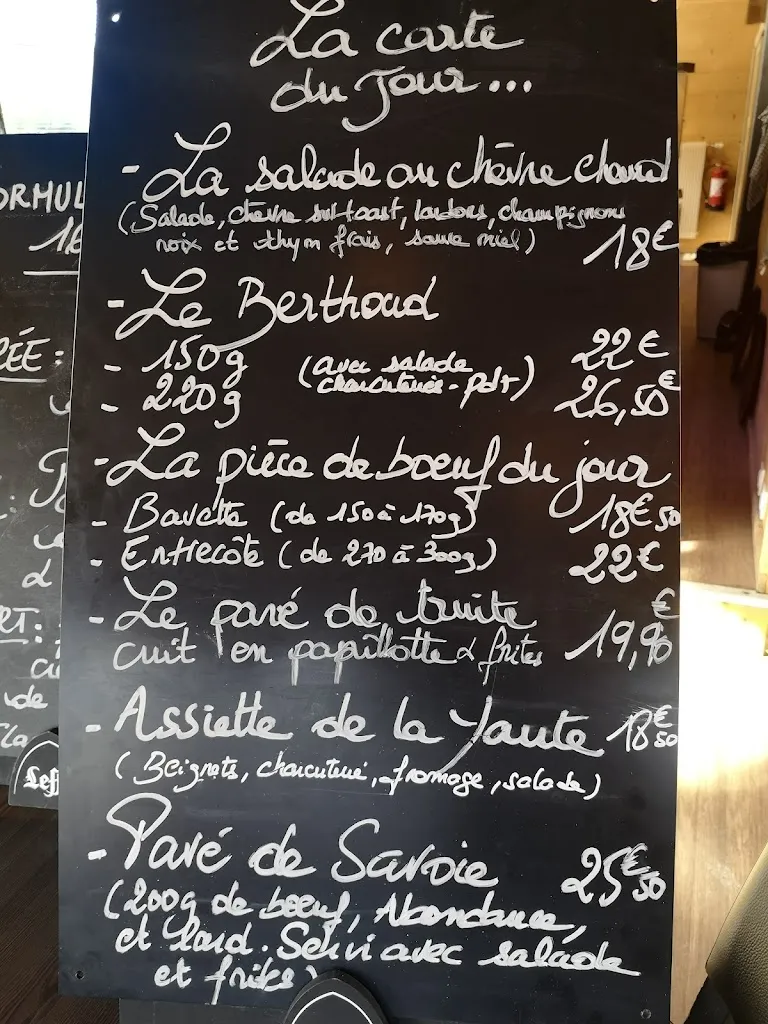 La carte
du Jour...
- La salade au chèvre chaud
(Salade, chèvre sur toast, lardons, champignons
noix et thym frais, sauce miel) 18€
- Le Berthoud
- 150g (avec salade 22€
- 220g charcuterie - pdt) 26,50€
- La pièce de boeuf du jour
- Bavette (de 150 à 170g) 18€50
- Entrecôte (de 270 à 300g) 22€
- Le pavé de truite
cuit en papillotte & frites 19,90€
- Assiette de la Yaute 18€50
(Beignets, charcuterie, fromage, salade)
- Pavé de Savoie 25€50
(200g de boeuf, Abondance,
et lard. Servi avec salade
et frites)
ORMUL
16
RÉE:
RT:
de
Leff